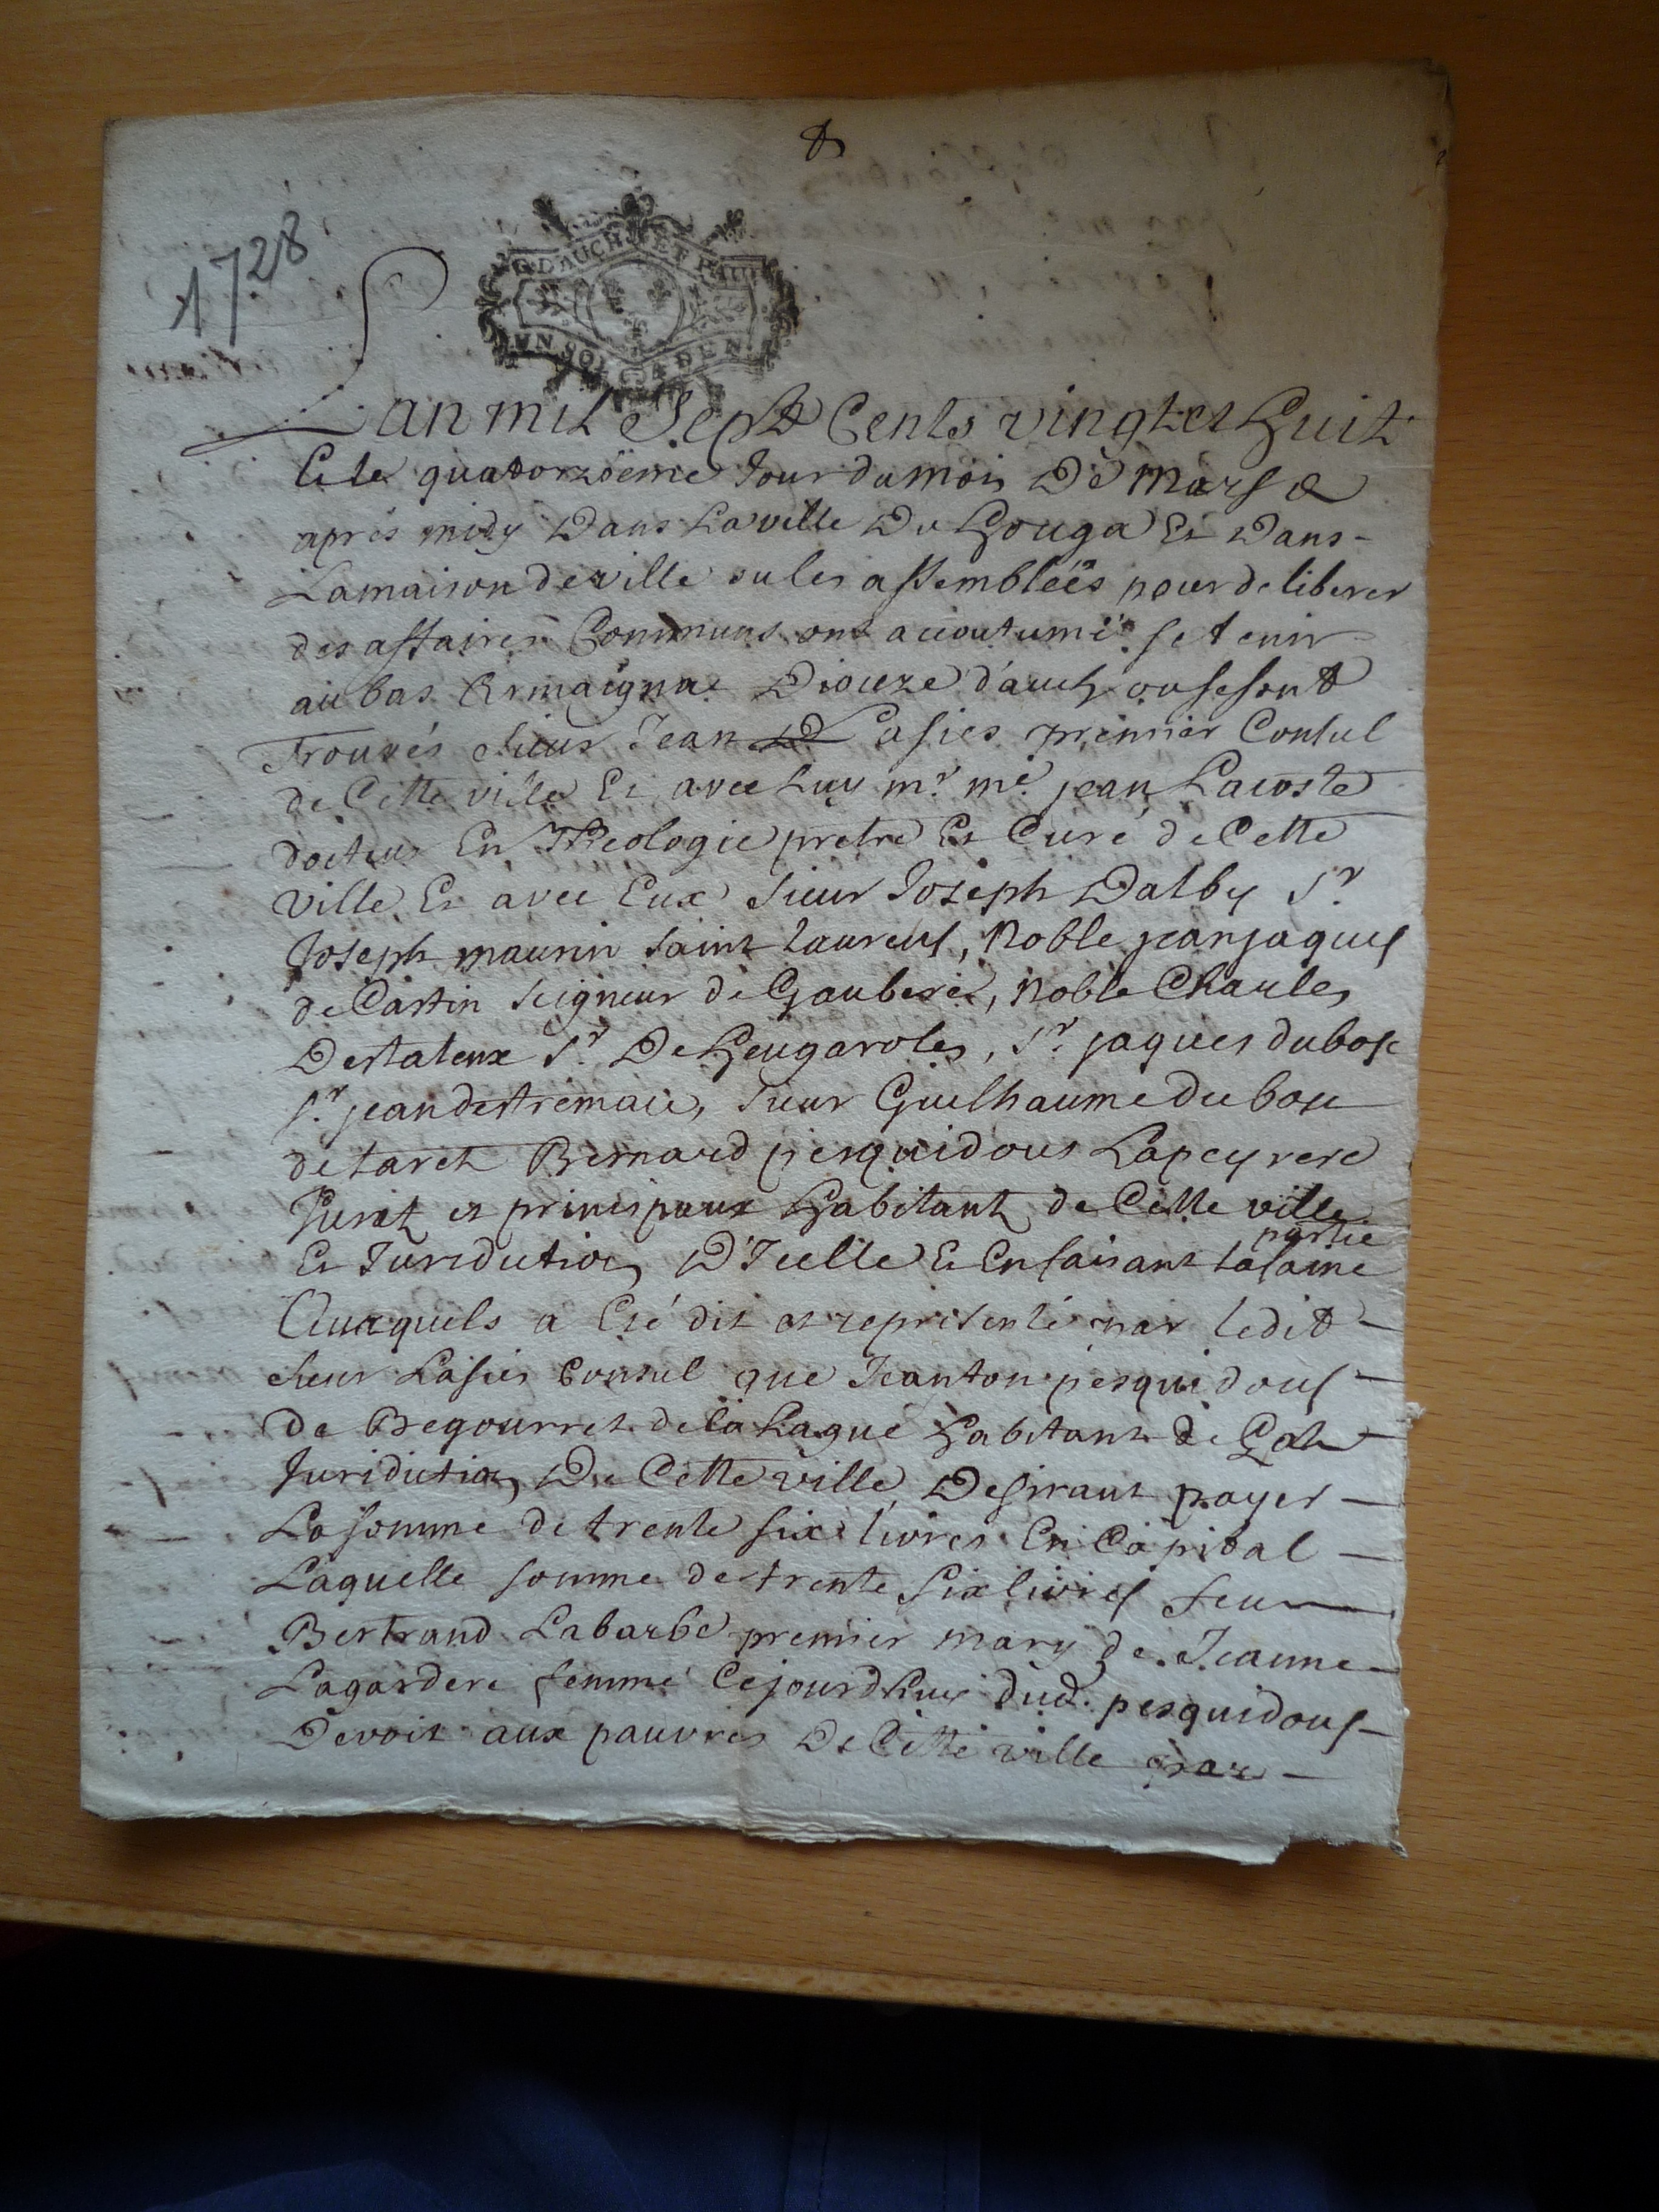 1728
G. D'AUCH ET PAU
UN SOL 4 DEN
L'an mil Sept Cents vingt et huit
Et le quatorzëme Jour du mois De mars
apres midy Dans La ville Du houga Et Dans
La maison de ville ou les assemblëes pour deliberer
des affaires Communs ont accoutumé se tenir
au bas Armaignac Dioceze d'auch ou se sont
Trouvés sieur Jean Lasies premier Consul
de Cette ville Et avec Luy mr. me. jean Lacoste
docteur En Theologie pretre Et Curé de Cette
ville Et avec Eux Sieur Joseph Dalby Sr.
Joseph maurin saint Laurens, Noble jean jaques
de Castin seigneur de Gauberé, Noble Charles
Destalenx Sr. De heugaroles, Sr. jaques dubosc
Sr. jean destremau, sieur Guilhaume dubosc
de taret Bernard pesquidous Lapeyrere
Jurat et principaux habitant de Cette ville
Et Juridiction D'Icelle Et En faisant la saine partie
Auxquels a Eté dit et representé par ledit
sieur Lasies Consul que Jeanton pesquidous
de Begourret de la hague habitant de
Juridiction De Cette ville Desirant payer
La somme de trente six livres En Capital
Laquelle somme de trente six livres feu
Bertrand Labarbe premier mary de Jeanne
Lagardere femme Cejourdhuy dud. pesquidous
Devoit aux pauvres De Cette ville par